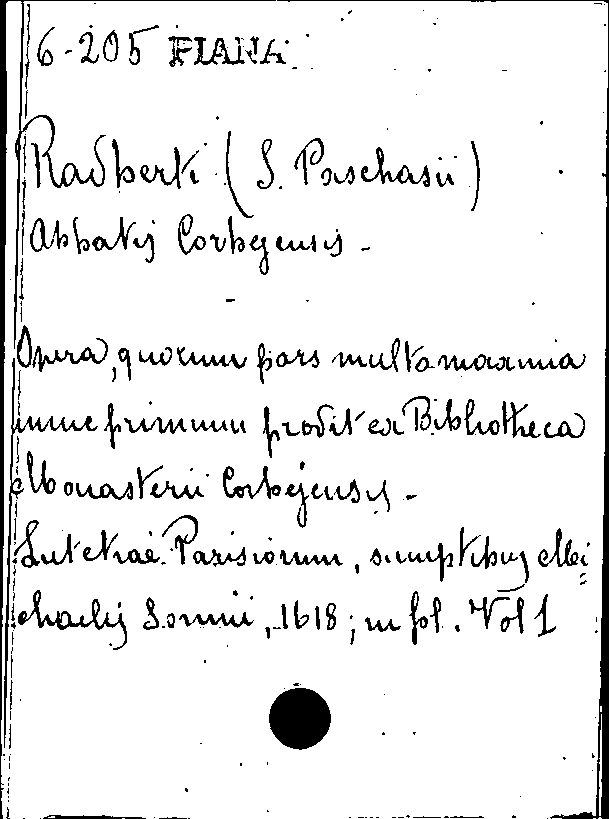 6-205 PIANA
Radberti (S. Paschasii)
Abbatis Corbejensis -
Opera, quorum pars multo maxima
nunc primum prodit ex Bibliotheca
Monasterii Corbejensis -
Lutetiae Parisiorum, sumptibus Mi=
chaelis Sonnii, 1618; in fol. Vol 1